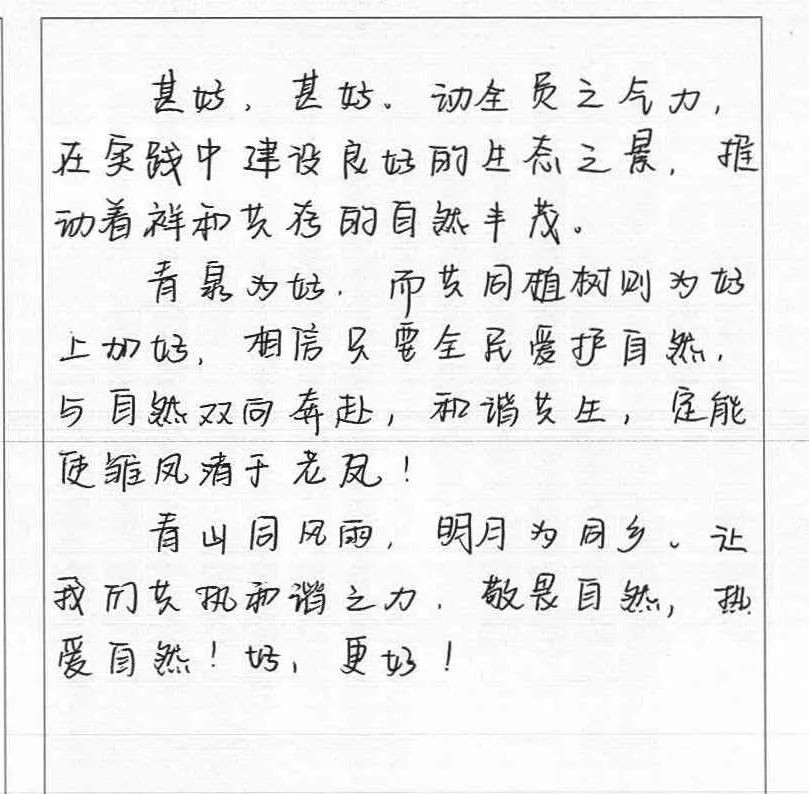 甚好，甚好。动全员之气力，
在实践中建设良好的生态之景，推
动着祥和共存的自然丰茂。
青泉为好，而共同植树则为好
上加好，相信只要全民爱护自然，
与自然双向奔赴，和谐共生，定能
使雏凤清于老凤！
青山同风雨，明月为同乡。让
我们共执和谐之力，敬畏自然，热
爱自然！好，更好！